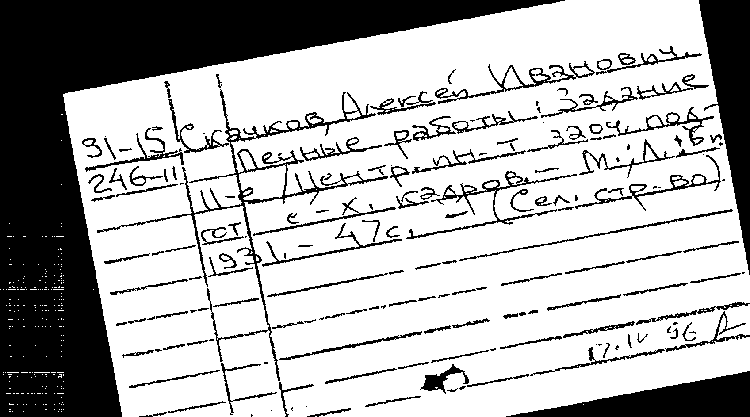 31-15 Скачков, Алексей Иванович.
246-11 Печные работы: Задание
11-е / Центр. ин-т заоч. под-
гот. с-х. кадров. - М.; Л.: Б и
1931. - 47 с. - (Сел. стр-во)
17.IV 96